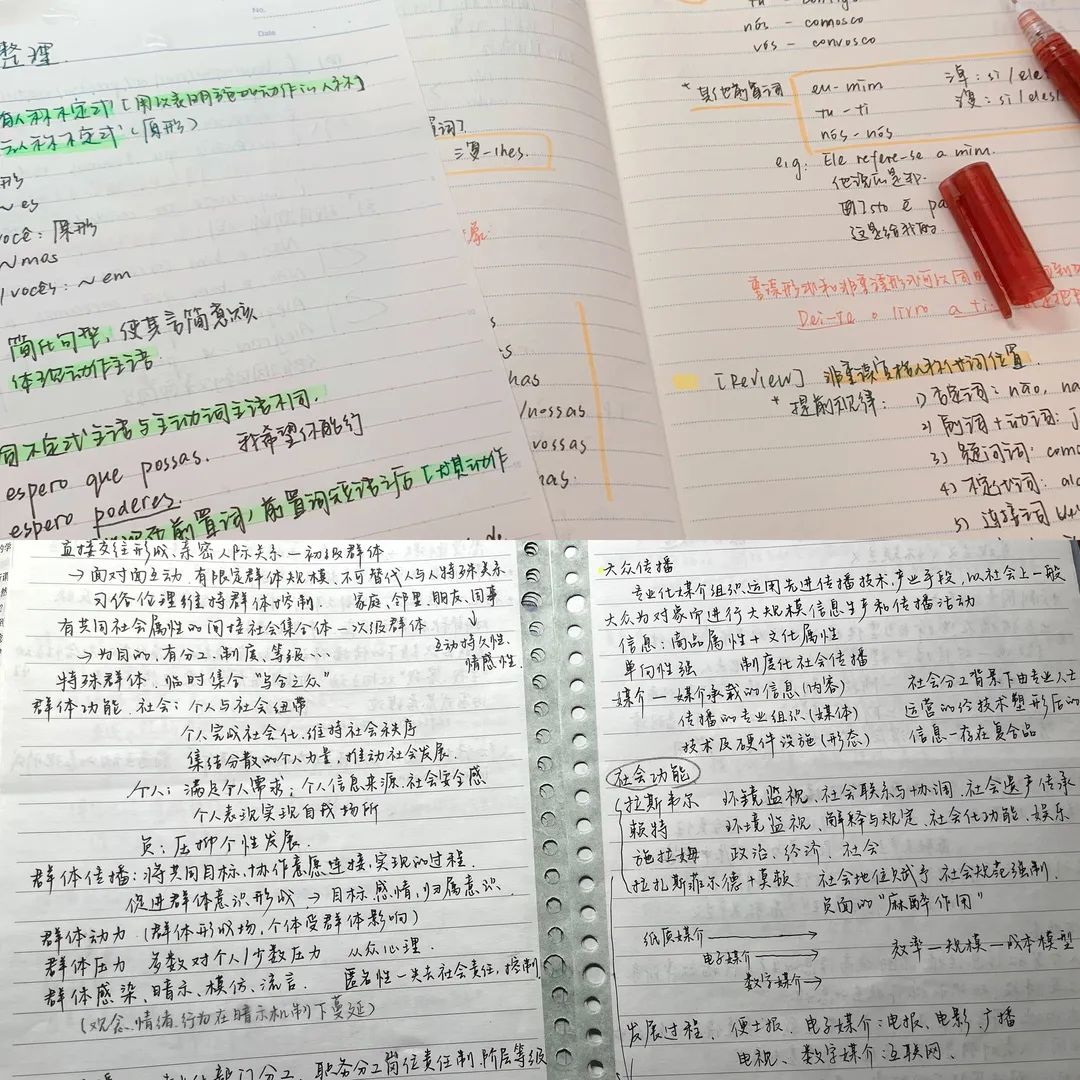 No.
Date
整理
有人称不定式 [用以表明
无人称不定式 (原形)
~es
você: 原形
~mos
/vocês: ~em
简化句型, 使其言简意赅
体现动作主语
不定式主语与主动词主语不同.
espero que possas. 我希望你能约
espero poderes.
前置词, 前置词短语之后 [
三复-lhes.
has
/nossas
vossas
nós - conosco
vós - convosco
*其他前置词 eu-mim 三单: si/ele
tu-ti 三复: si/eles/
nós-nós
e.g: Ele refere-se a mim.
他说的是我.
Isto é pa
这是给我的.
重读形式和非重读形式可以同
Dei-te o livro a ti
[Review] 非重读宾格人称代词位置.
*提前规律: 1) 否定词: não, na
2) 副词+动词: j
3) 疑问词: como
4) 不定代词: al
5) 连接词
直接交往形成、亲密人际关系—初级群体
→面对面互动.有限定群体规模、不可替代人与人特殊关系
习俗伦理维持群体控制. 家庭、邻里、朋友、同事
有共同社会属性的间接社会集合体—次级群体
↓
互动持久性、
情感性.
→为目的、有分工、制度、等级…
特殊群体. 临时集合 "乌合之众"
群体功能. 社会: 个人与社会纽带
个人完成社会化.维持社会秩序
集结分散的个人力量,推动社会发展.
个人: 满足个人需求; 个人信息来源.社会安全感
个人表现实现自我场所
负: 压抑个性发展.
群体传播: 将共同目标、协作意愿连接、实现的过程.
促进群体意识形成 → 目标、感情、归属意识.
群体动力 (群体形成场,个体受群体影响)
群体压力 多数对个人/少数压力 从众心理.
群体感染、暗示、模仿、流言. 匿名性—失去社会责任,控制
(观念、情绪、行为在暗示机制下蔓延)
部门分工、职务分工岗位责任制、阶层等级
大众传播
专业化媒介组织运用先进传播技术,产业手段,以社会上一般
大众为对象而进行大规模信息生产和传播活动
信息: 商品属性+文化属性
单向性强 制度化社会传播
媒介—媒介承载的信息(内容) 社会分工背景下由专业人士
传播的专业组织(媒体) 运营的经技术塑形后的
技术及硬件设施(形态) 信息—存在复合品
社会功能
拉斯韦尔 环境监视、社会联系与协调、社会遗产传承
赖特 环境监视、解释与规定、社会化功能、娱乐
施拉姆 政治、经济、社会
拉扎斯菲尔德+莫顿 社会地位赋予 社会规范强制.
负面的"麻醉作用"
纸质媒介→
电子媒介→ 效率—规模—成本模型
数字媒介→
发展过程. 便士报. 电子媒介: 电报、电影、广播
电视、数字媒介: 互联网.